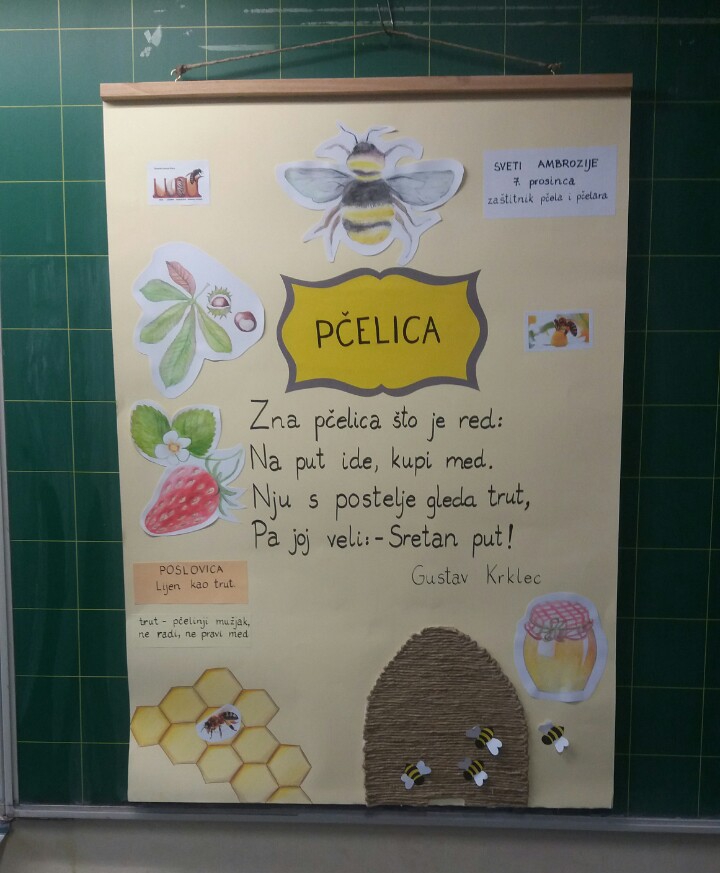 SVETI AMBROZIJE
7. prosinca
zaštitnik pčela i pčelara
PČELICA
Zna pčelica što je red:
Na put ide, kupi med.
Nju s postelje gleda trut,
Pa joj veli:-Sretan put!
Gustav Krklec
POSLOVICA
Lijen kao trut
trut - pčelinji mužjak,
ne radi, ne pravi med